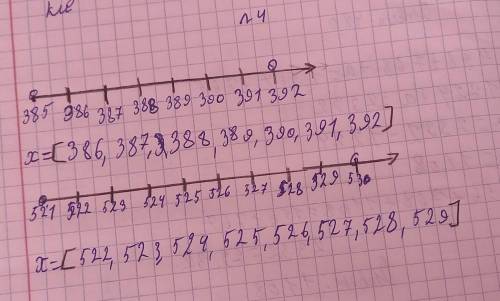 кле
№4
385 386 387 388 389 390 391 392
x=[386, 387, 388, 389, 390, 391, 392]
521 522 523 524 525 526 527 528 529 530
x=[522, 523, 524, 525, 526, 527, 528, 529]